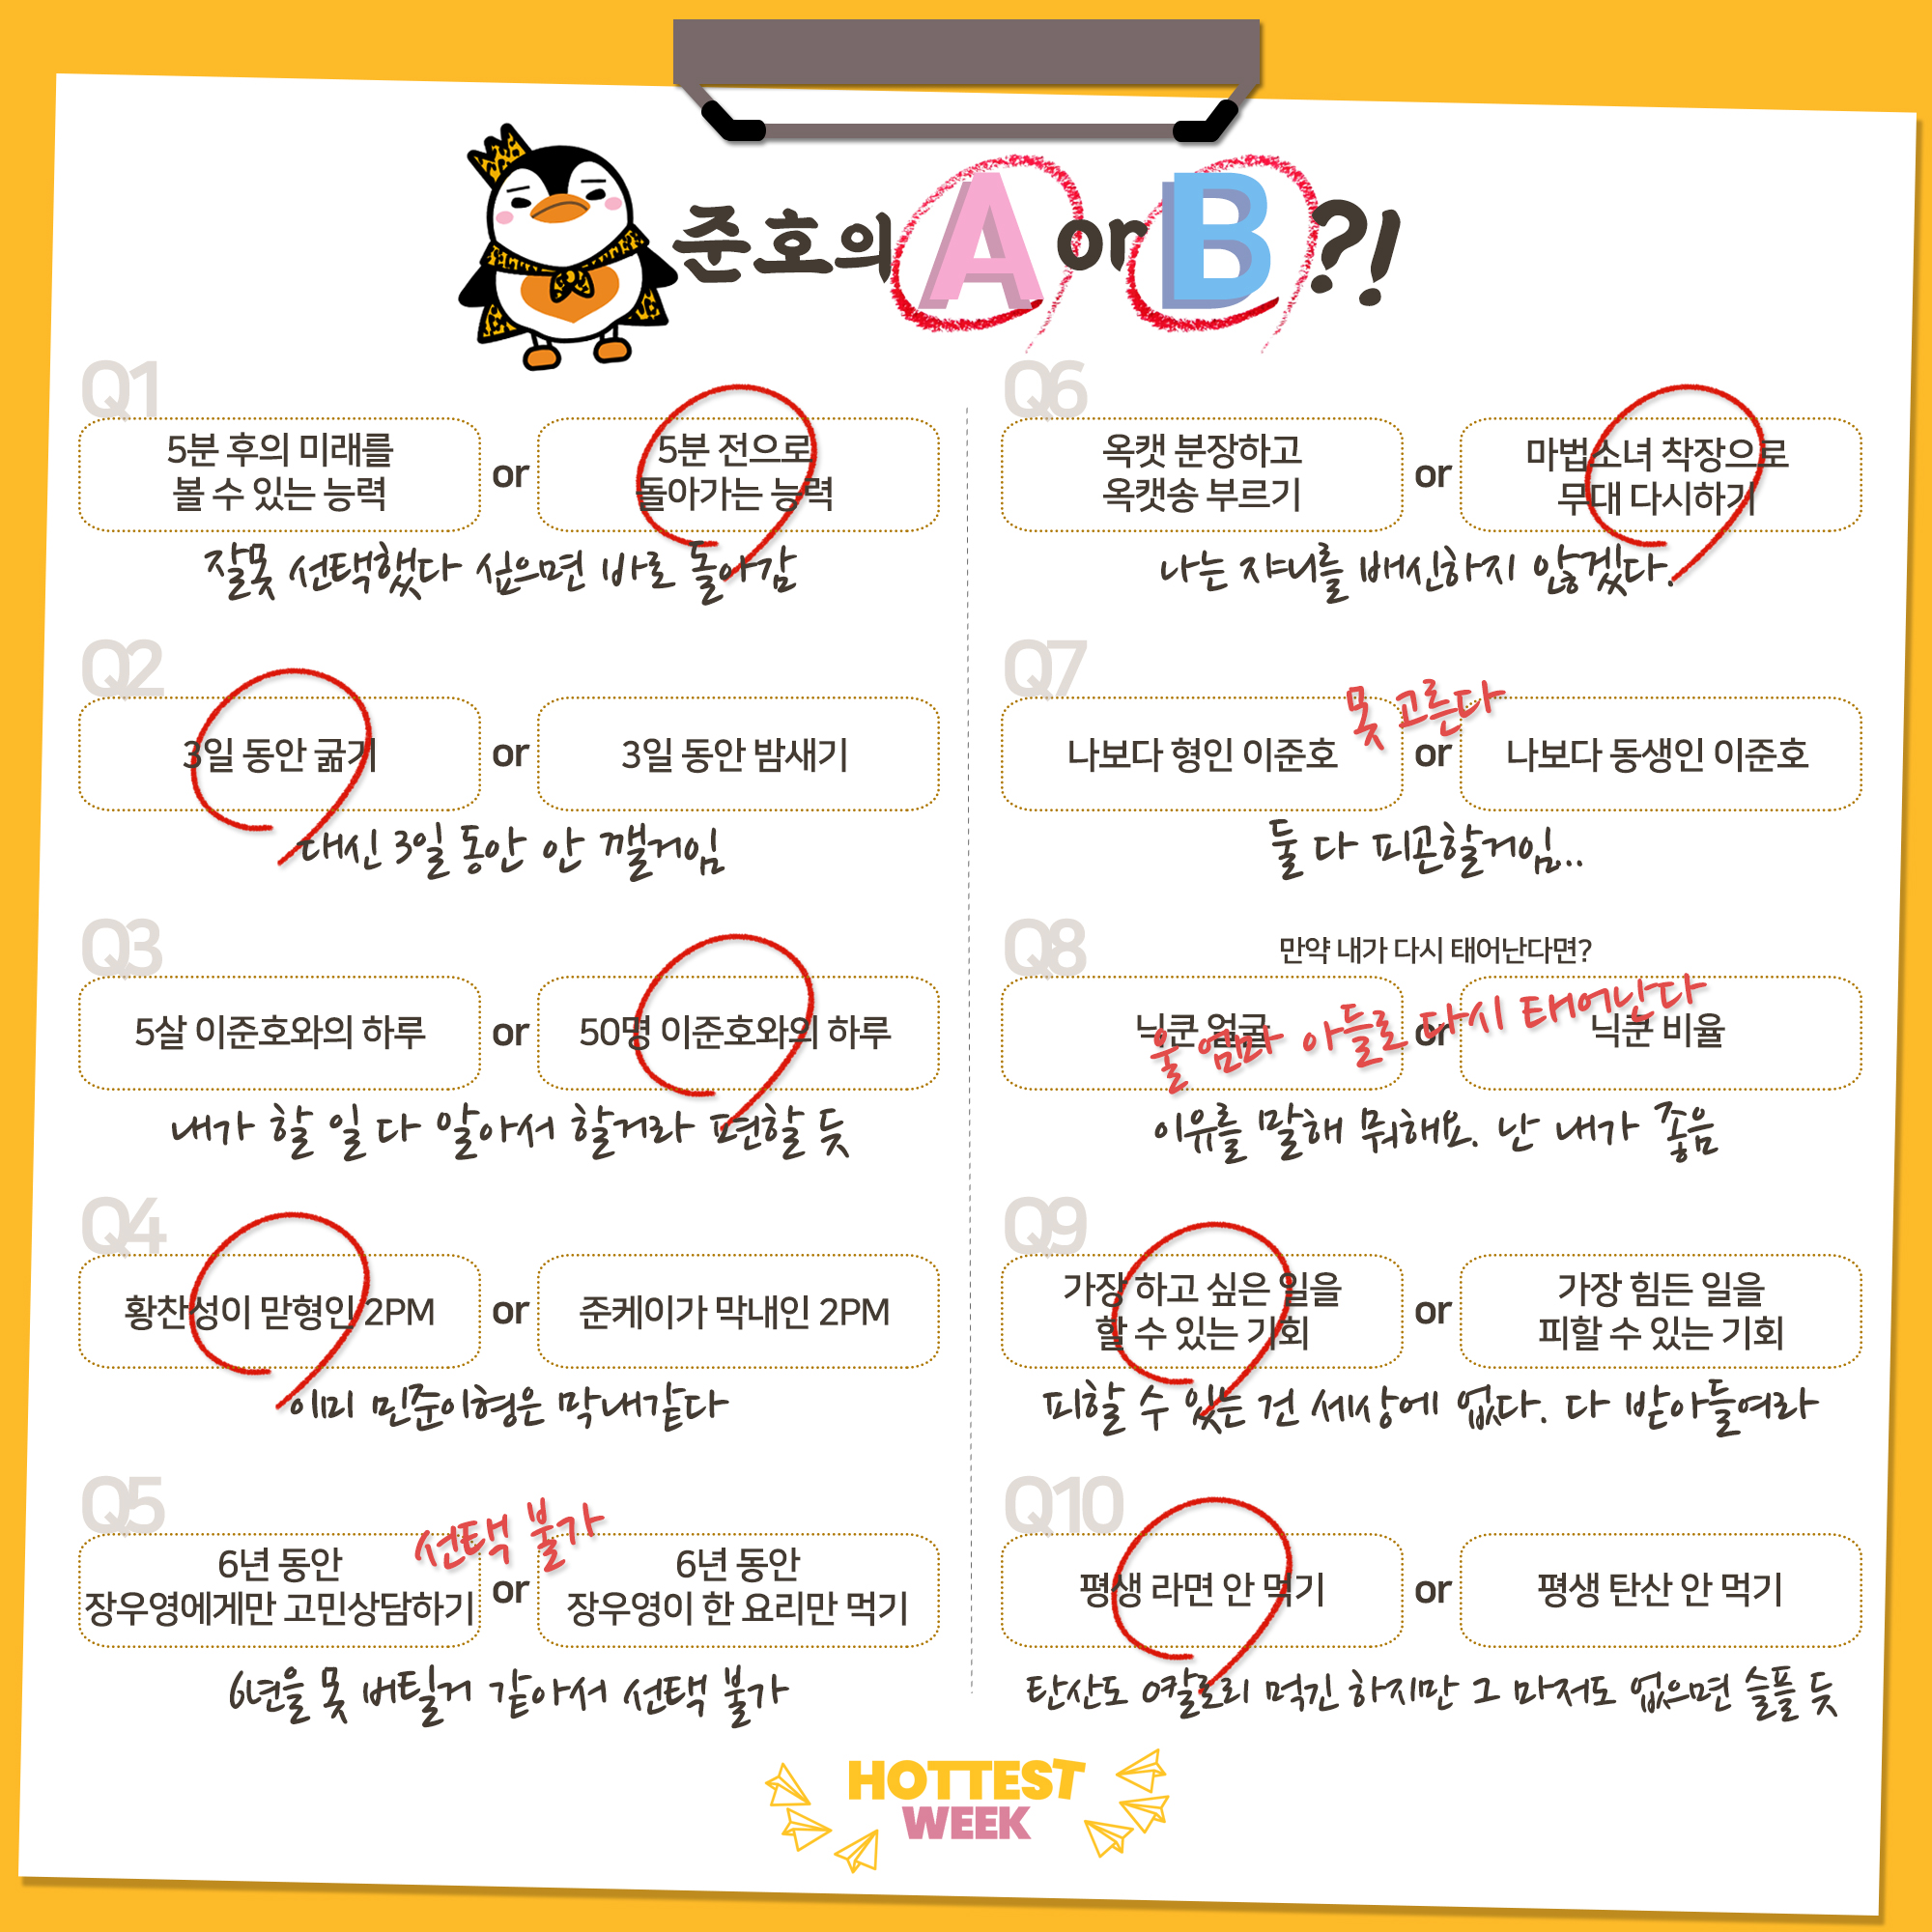 준호의 A or B ?!
Q1
5분 후의 미래를
볼 수 있는 능력
or
5분 전으로
돌아가는 능력
잘못 선택했다 싶으면 바로 돌아감
Q2
3일 동안 굶기
or
3일 동안 밤새기
대신 3일 동안 안 깰거임
Q3
5살 이준호와의 하루
or
50명 이준호와의 하루
내가 할 일 다 알아서 할거라 편할 듯
Q4
황찬성이 맏형인 2PM
or
준케이가 막내인 2PM
이미 민준이형은 막내같다
Q5
선택 불가
6년 동안
장우영에게만 고민상담하기
or
6년 동안
장우영이 한 요리만 먹기
6년을 못 버틸거 같아서 선택 불가
Q6
옥캣 분장하고
옥캣송 부르기
or
마법소녀 착장으로
무대 다시하기
나는 쟈니를 배신하지 않겠다.
Q7
못 고른다
나보다 형인 이준호
or
나보다 동생인 이준호
둘 다 피곤할거임..
Q8
만약 내가 다시 태어난다면?
닉쿤 얼굴
or
닉쿤 비율
울 엄마 아들로 다시 태어난다
이유를 말해 뭐해요. 난 내가 좋음
Q9
가장 하고 싶은 일을
할 수 있는 기회
or
가장 힘든 일을
피할 수 있는 기회
피할 수 있는 건 세상에 없다. 다 받아들여라
Q10
평생 라면 안 먹기
or
평생 탄산 안 먹기
탄산도 0칼로리 먹긴 하지만 그 마저도 없으면 슬플 듯
HOTTEST
WEEK